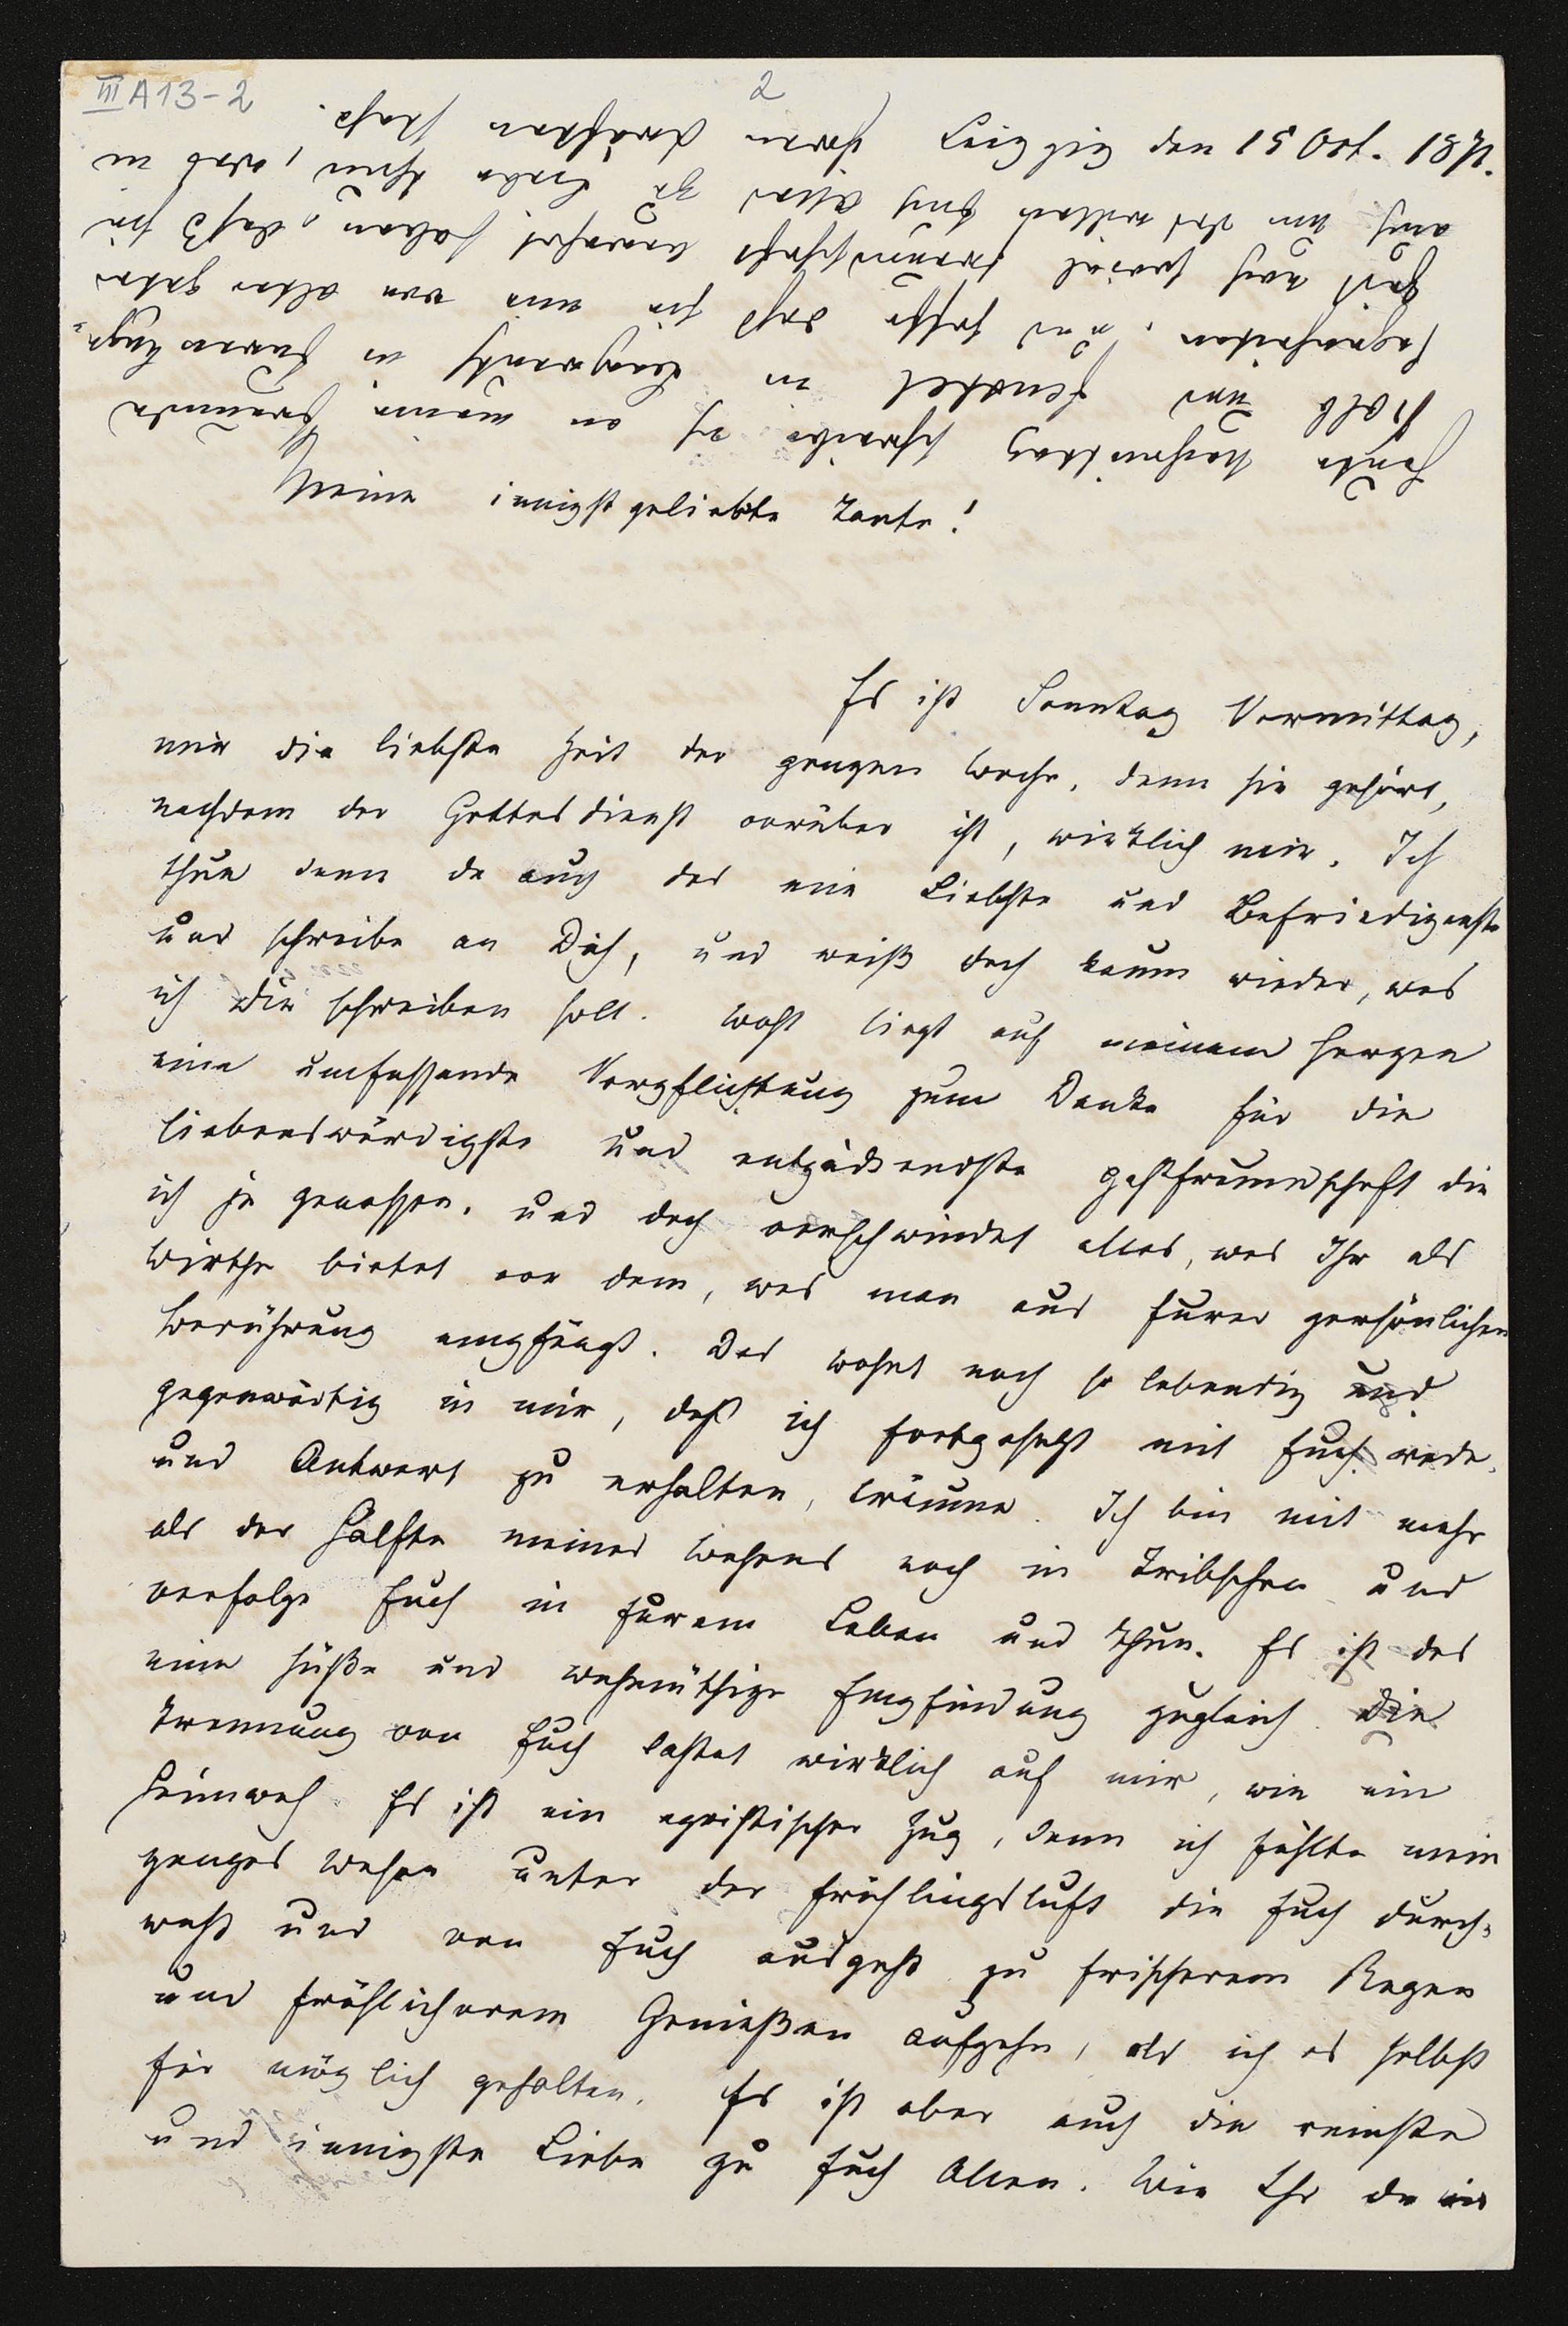 III A13-2
2
Leipzig den 15 Oct. 1871.
Meine innigst geliebte Tante!
Es ist Sonntag Vormittag,
mir die liebste Zeit der ganzen Woche, denn sie gehört,
nachdem der Gottesdienst vorüber ist, wirklich mir. Ich
thue denn da auch das mir Liebste und Befriedigenste
und schreibe an Dich, und weiß doch kaum wieder, was
ich Dir schreiben soll. Wohl liegt auf meinem Herzen
eine umfassende Verpflichtung zum Danke für die
liebenswürdigste und entzückendste Gastfreundschaft die
ich je genossen, und doch verschwindet alles, was Ihr als
Wirthe bietet vor dem, was man aus Eurer persönlichen
Berührung empfängt. Das wohnt noch so lebendig und
gegenwärtig in mir, daß ich fortgesetzt mit Euch rede,
und Antwort zu erhalten, träume. Ich bin mit mehr
als der Hälfte meines Wesens noch in Tribschen und
verfolge Euch in Eurem Leben und Thun. Es ist das
eine süße und wehmüthige Empfindung zugleich. Die
Trennung von Euch lastet wirklich auf mir, wie ein
Heimweh. Es ist ein egoistischer Zug, denn ich fühlte mein
ganzes Wesen unter der Frühlingsluft die Euch durch-
weht und von Euch ausgeht zu frischerem Regen
und fröhlicherem Genießen aufgehn, als ich es selbst
für möglich gehalten. Es ist aber auch die reinste
und innigste Liebe zu Euch Allen. Wie Ihr da
Heute Nachmittag schreibe ich an meine Freunde
und in in Eurer Ange-
legenheiten, und hoffe daß sie mir von alter guter
Zeit noch soviel Freundschaft bewahrt haben, daß sie
auch um des willen Euch Alles zu Liebe thun, was in
ihren Kräften steht.